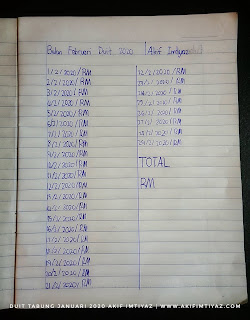 Bulan Februari Duit 2020
Akif Imtiyaz
1/2/2020/RM
2/2/2020/RM
3/2/2020/RM
4/2/2020/RM
5/2/2020/RM
6/2/2020/RM
7/2/2020/RM
8/2/2020/RM
9/2/2020/RM
10/2/2020/RM
11/2/2020/RM
12/2/2020/RM
13/2/2020/RM
14/2/2020/RM
15/2/2020/RM
16/2/2020/RM
17/2/2020/RM
18/2/2020/RM
19/2/2020/RM
20/2/2020/RM
21/2/2020/RM
22/2/2020/RM
23/2/2020/RM
24/2/2020/RM
25/2/2020/RM
26/2/2020/RM
27/2/2020/RM
28/2/2020/RM
29/2/2020/RM
TOTAL
RM
DUIT TABUNG JANUARI 2020 AKIF IMTIYAZ | WWW.AKIFIMTIYAZ.COM